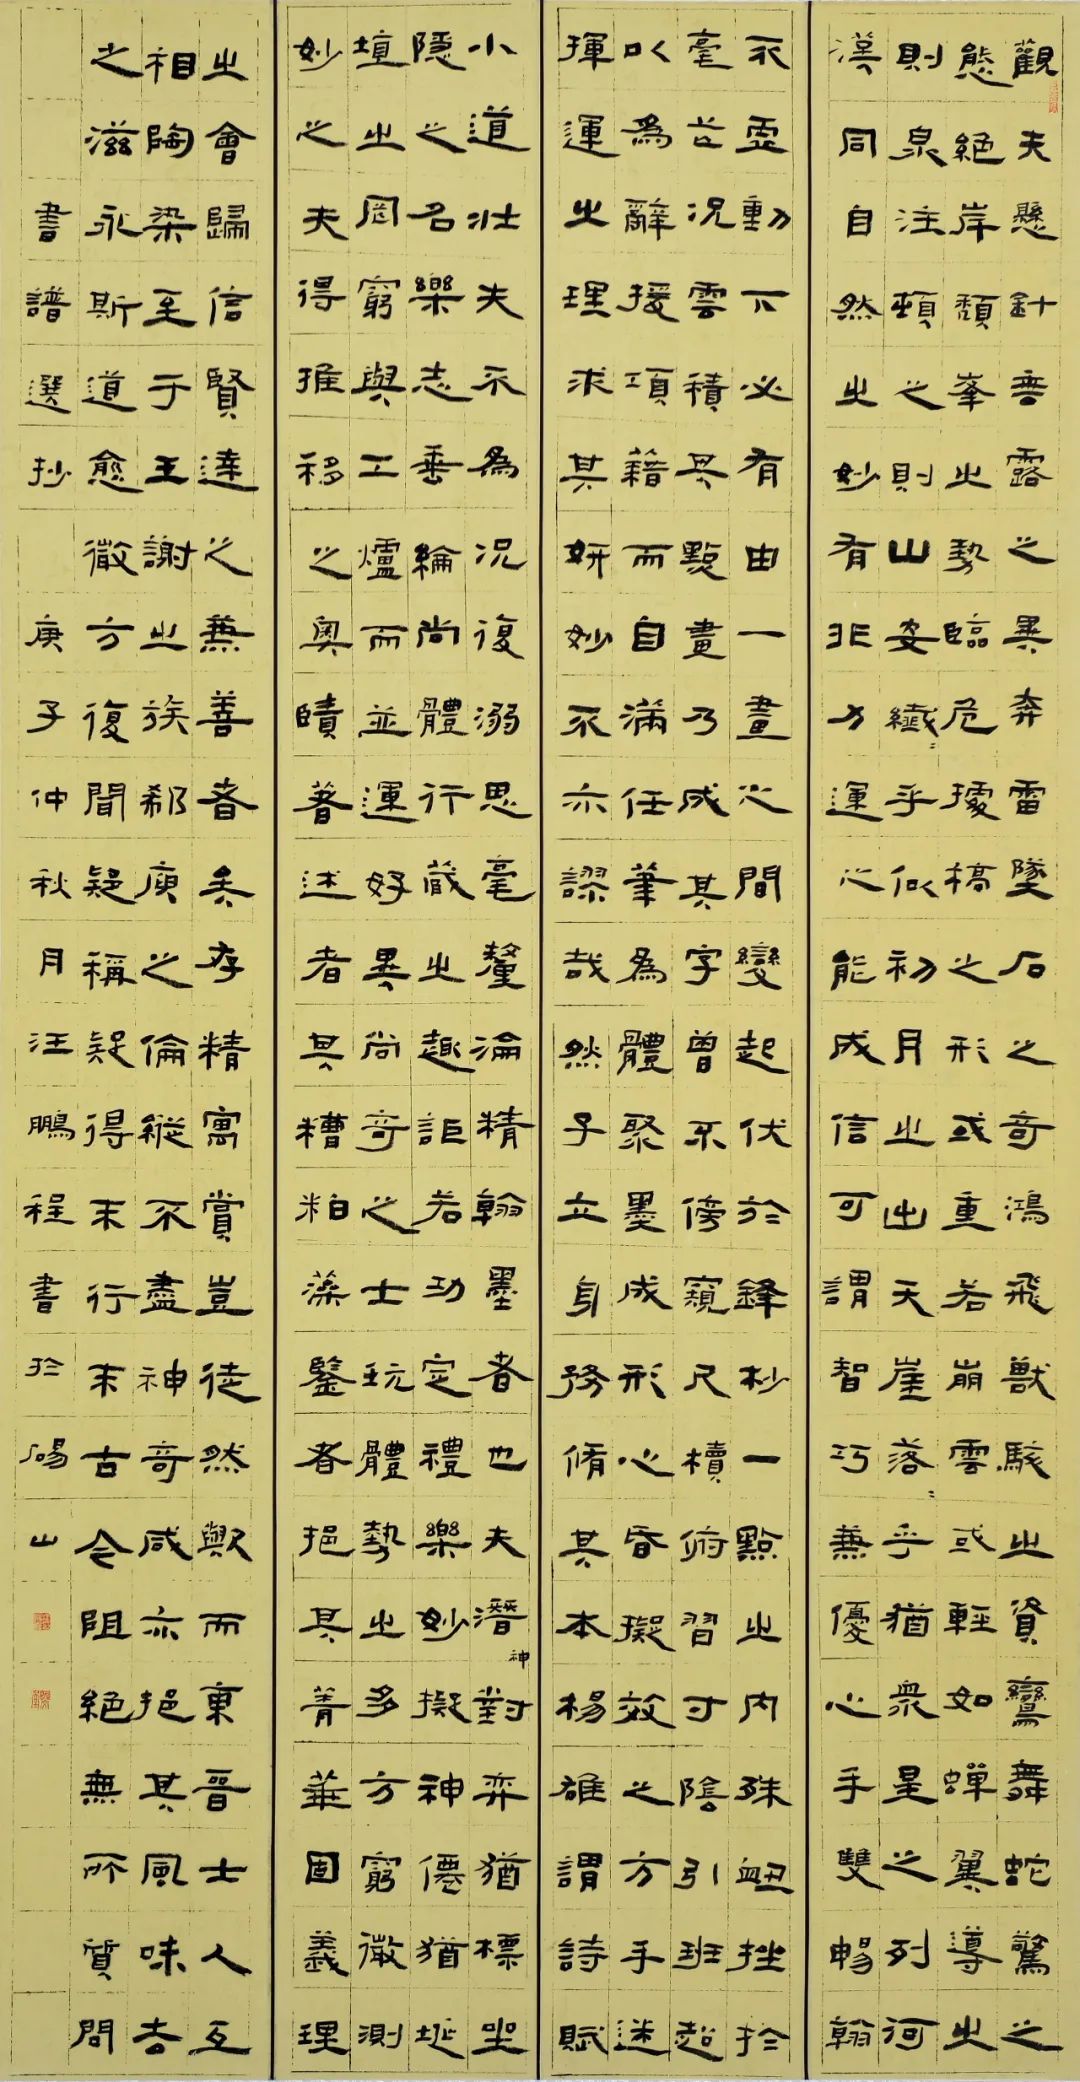 觀夫懸針垂露之異奔雷墜石之奇鴻飛獸駭之資鸞舞蛇驚之
態絕岸頹峯之勢臨危據槁之形或重若崩雲或輕如蟬翼導之
則泉注頓之則山安纖〻乎似初月之出天崖落〻乎猶衆星之列河
漢同自然之妙有非力運之能成信可謂智巧兼優心手雙暢翰
不虛動下必有由一畫之間變起伏於鋒杪一點之內殊衄挫於
毫芒況雲積其點畫乃成其字曾不傍窺尺櫝俯習寸陰引班超
以為辭援項籍而自滿任筆為體聚墨成形心昏擬效之方手迷
揮運之理求其妍妙不亦謬哉然子立身務脩其本楊雄謂詩賦
小道壯夫不為況復溺思毫釐淪精翰墨者也夫潛神對弈猶標坐
隱之名樂志垂綸尚體行藏之趣詎若功定禮樂妙擬神僊猶埏
埴之罔窮與工爐而並運好異尚奇之士玩體勢之多方窮微測
妙之夫得推移之奧賾著述者其糟粕藻鑒者挹其菁華固義理
之會歸信賢達之兼善者矣存精寓賞豈徒然歟而東晉士人互
相陶染至于王謝之族郗庾之倫縱不盡神奇咸亦挹其風味去
之滋永斯道愈微方復聞疑稱疑得末行末古今阻絕無所質問
書譜選抄 庚子仲秋月汪鵬程書於碭山